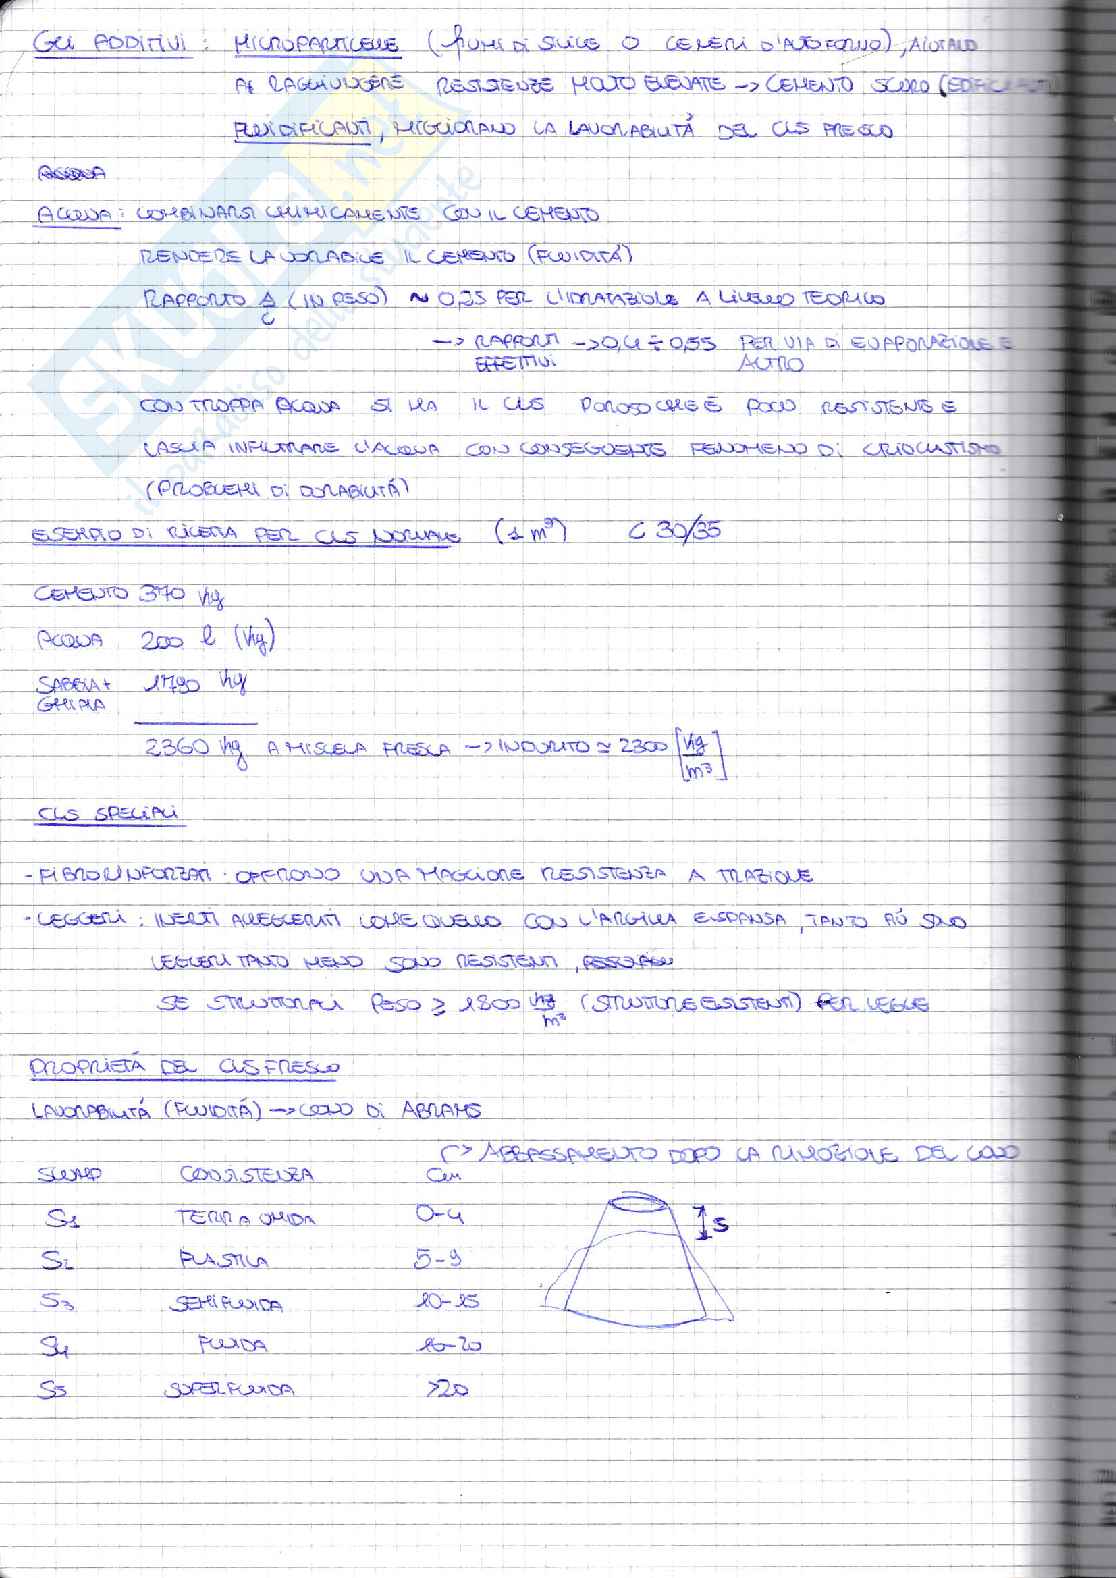 GLI ADDITIVI : MICROPARTICELLE (FUMI DI SILICE O CENERI D'ALTOFORNO), AIUTANO
A RAGGIUNGERE RESISTENZE MOLTO ELEVATE -> CEMENTO SCURO (EDIFICI ALTI)
FLUIDIFICANTI, MIGLIORANO LA LAVORABILITÁ DEL CLS FRESCO
ACQUA
ACQUA : COMBINARSI CHIMICAMENTE CON IL CEMENTO
RENDERE LAVORABILE IL CEMENTO (FLUIDITÁ)
RAPPORTO A/C (IN PESO) ~ 0,25 PER L'IDRATAZIONE A LIVELLO TEORICO
-> RAPPORTI EFFETTIVI -> 0,4 ÷ 0,55 PER VIA DI EVAPORAZIONE E ALTRO
CON TROPPA ACQUA SI HA IL CLS POROSO CHE É POCO RESISTENTE E
LASCIA INFILTRARE L'ACQUA CON CONSEGUENTE FENOMENO DI CRIOCLASTISMO
(PROBLEMI DI DURABILITÁ)
ESEMPIO DI RICETTA PER CLS NORMALE (1 m³) C 30/35
CEMENTO 370 Kg
ACQUA 200 l (Kg)
SABBIA + GHIAIA 1790 Kg
2360 Kg A MISCELA FRESCA -> INDURITO ≃ 2300 [Kg/m³]
CLS SPECIALI
- FIBRORINFORZATI : OFFRONO UNA MAGGIORE RESISTENZA A TRAZIONE
- LEGGERI : INERTI ALLEGGERITI COME QUELLO CON L'ARGILLA ESPANSA, TANTO PIÚ SONO
LEGGERI TANTO MENO SONO RESISTENTI,
SE STRUTTURALI PESO ≥ 1800 Kg/m³ (STRUTTURE ESISTENTI) PER LEGGE
PROPRIETÁ DEL CLS FRESCO
LAVORABILITÁ (FLUIDITÁ) -> CONO DI ABRAMS
-> ABBASSAMENTO DOPO LA RIMOZIONE DEL CONO
SLUMP CONSISTENZA Cm
S1 TERRA UMIDA 0-4
S2 PLASTICA 5-9
S3 SEMIFLUIDA 10-15
S4 FLUIDA 16-20
S5 SUPERFLUIDA >20
S
SKUOLA.net
il paradiso dello studente